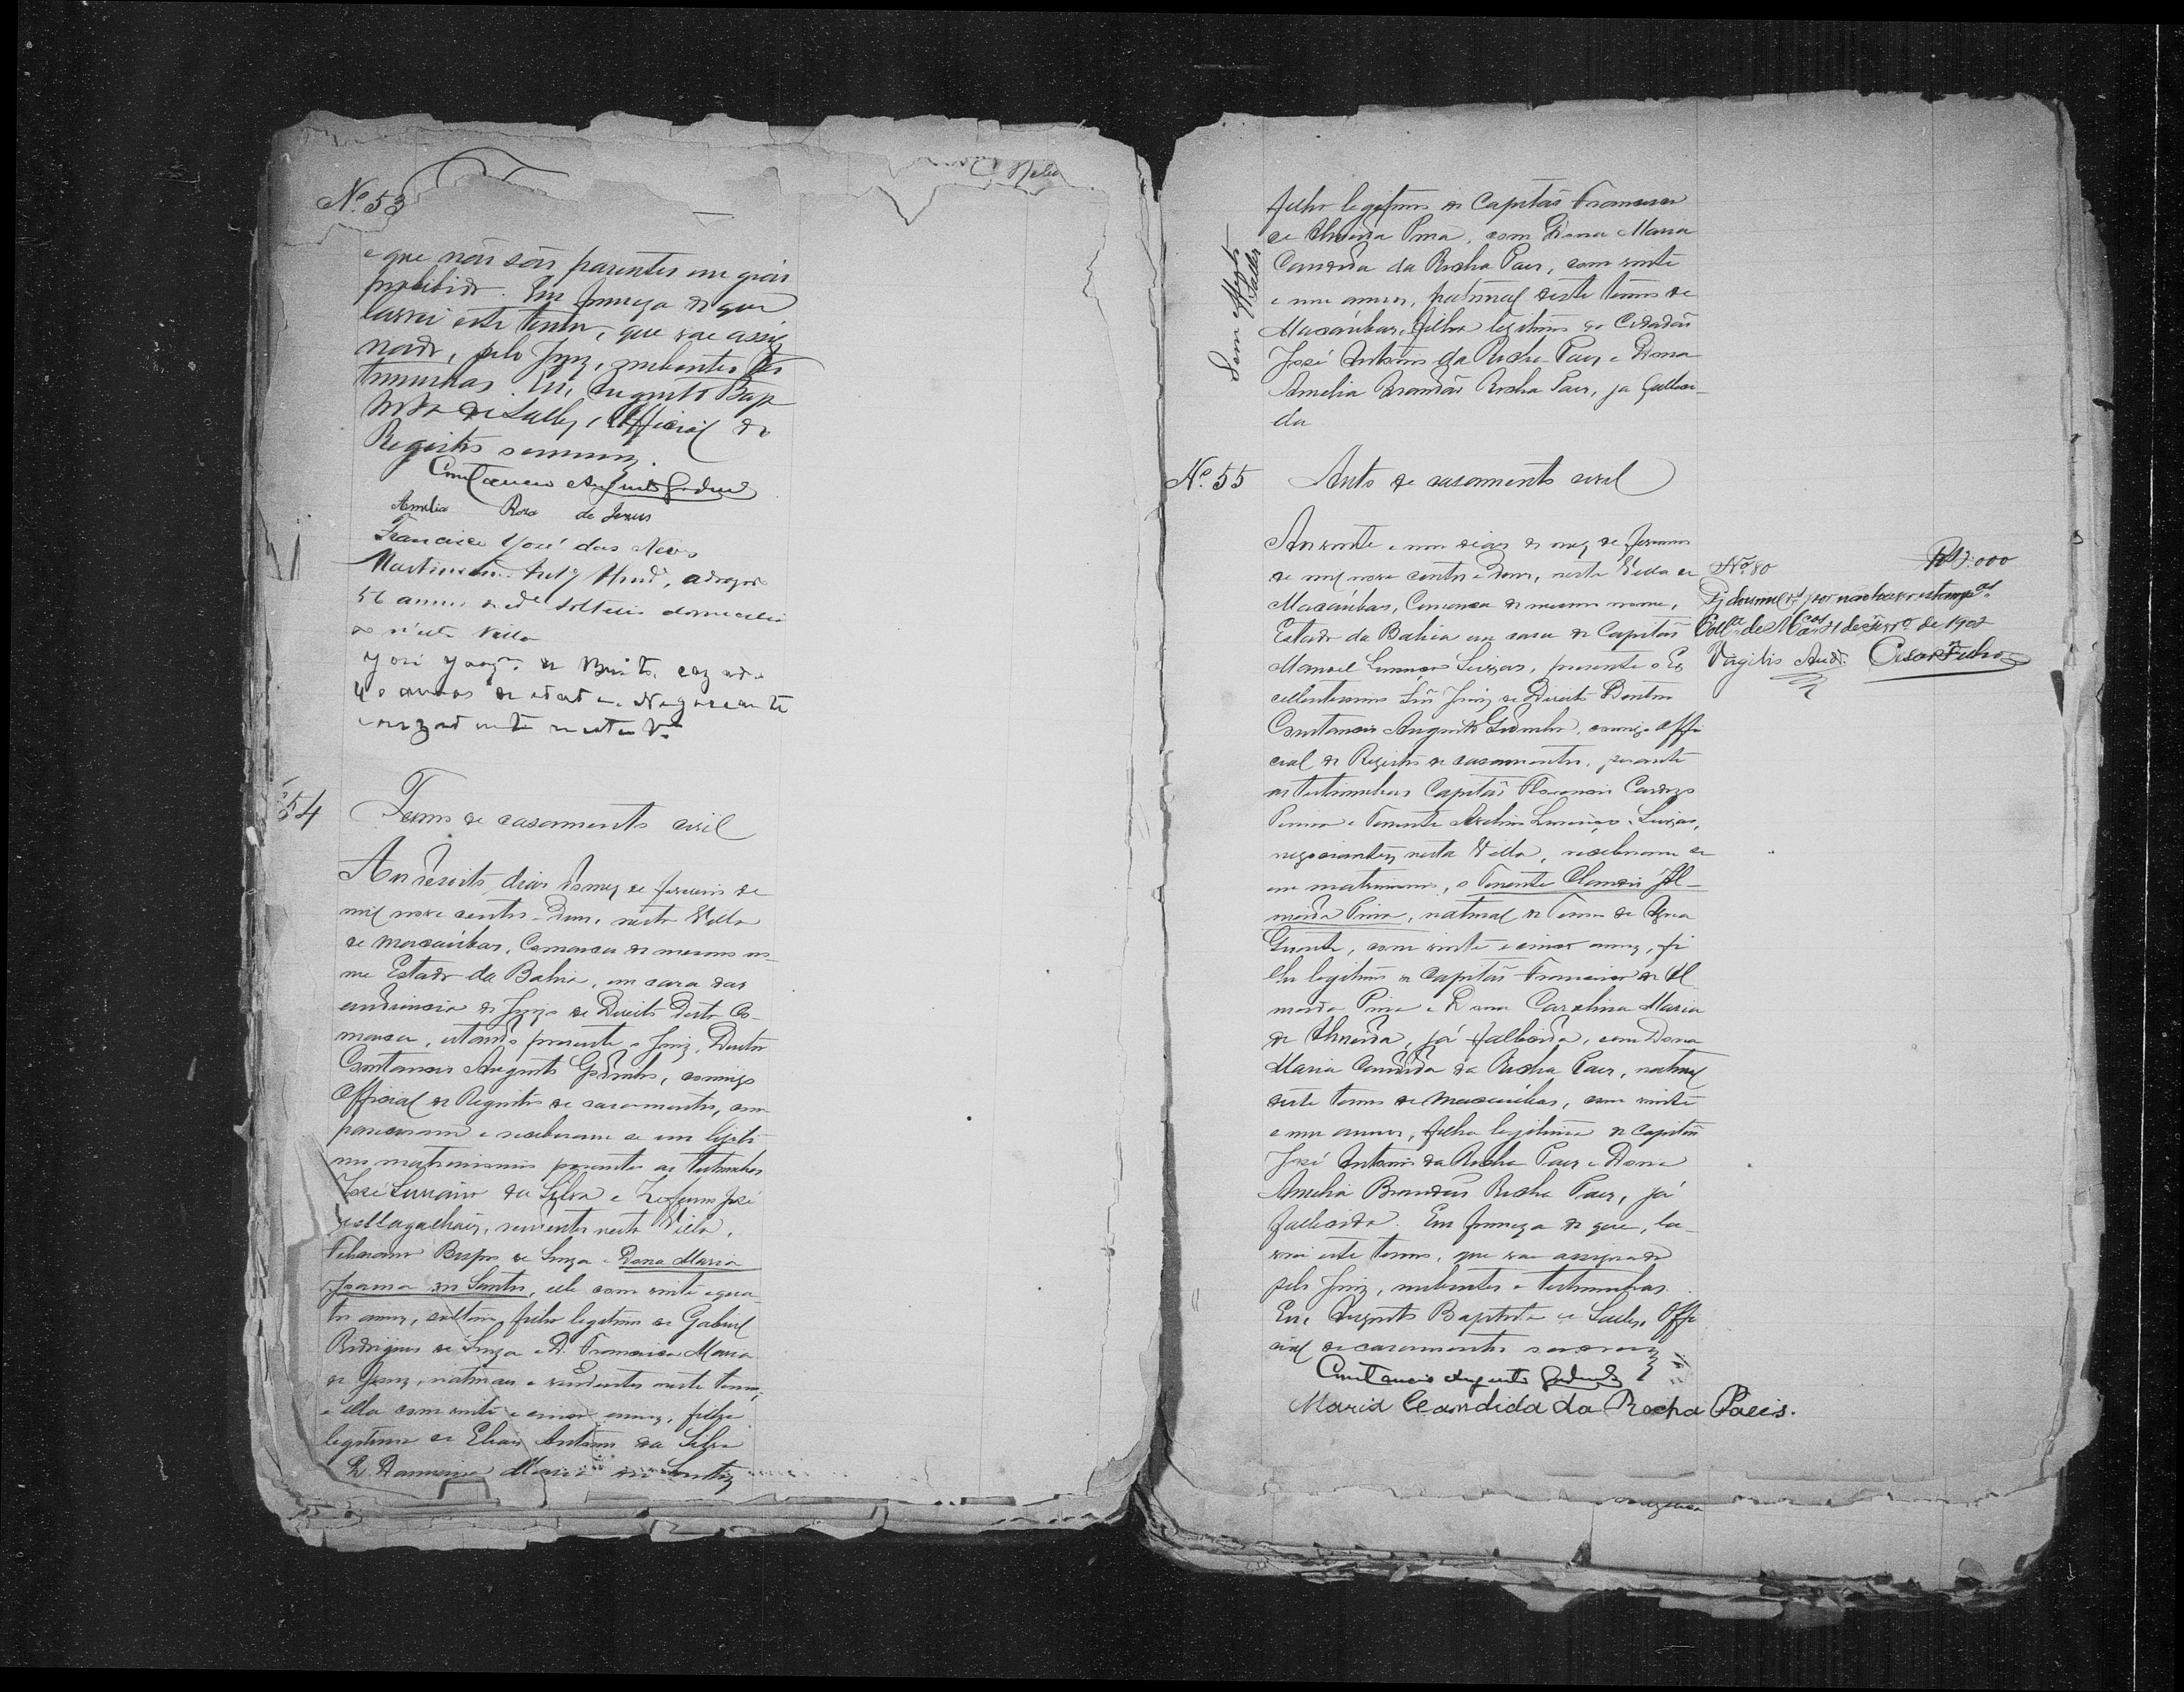 Nº 53
e que não são parentes em gráo
prohibido. Em firmeza do que
lavrei este termo, que vae assig
nado, pelo Juiz, nubentes e tes
temunhas. Eu, Augusto Bap
tista de Salles, Official do
Registro o escrevy.
Constancio Augusto Godinho
Amelia Rosa de Jesus
Francisco José das Neves
56 annos de ide solteiro domicilia
do n'esta Villa
José de Brito, cazado
40 annos de idade. Negociante
nesta Vª
54
Termo de casamento civil
Aos desoito dias do mez de Janeiro de
mil nove centos e dous, nesta Villa
de Macaúbas, Comarca do mesmo no-
me Estado da Bahia, em casa das
audiencia do Juizo de Direito desta Co-
marca, estando presente o Juiz, Doutor
Constancio Augusto Godinho, comigo
Official do Registro de casamentos, com
pareceram e receberam se em legiti
mo matrimonio perante as testemunhas
José da Silva e Zeferino José
de Magalhães, residentes nesta Villa,
Feliciano de Souza e Dona Maria
Joanna dos Santos, elle com vinte e qua-
tro annos, solteiro, filho legitimo de Gabriel
Rodrigues de Souza e D. Francisca Maria
de Jesus, naturaes e residentes neste termo,
e ella com vinte e cinco annos, filha
legitima de Elias Antonio da Silva
e D. Maria dos Santos
Sem effeito
Salles
filho legitimo do Capitão Francisco
de Almeida Pina, com Dona Maria
Candida da Rocha Paes, com vinte
e um annos, natural deste termo de
Macaúbas, filha legitima do Cidadão
José Antonio da Rocha Paes e Dona
Amelia Brandão Rocha Paes, ja falleci-
da
Nº 55
Auto de casamento civil
Aos vinte e um dias do mez de Janeiro
de mil nove centos e dous, nesta Villa de
Macaúbas, Comarca do mesmo nome,
Estado da Bahia em casa do Capitão
Manoel Lourenço Seixas, presente o Ex
cellentissimo Snr Juiz de Direito Doutor
Constancio Augusto Godinho, comigo Offi
cial do Registro de casamentos, perante
as testemunhas Capitão Florencio Cardozo
e Tenente Avelino Lourenço Seixas,
negociantes nesta Villa, receberam se
em matrimonio, o Tenente Clemente Al-
meida Pina, natural do Termo de Agua
Quente, com vinte e cinco annos, fi
lho legitimo do Capitão Francisco de Al
meida Pina e Dona Carolina Maria
de Almeida, já fallecida, com Dona
Maria Candida da Rocha Paes, natural
deste termo de Macaúbas, com vinte
e um annos, filha legitima do Capitão
José Antonio da Rocha Paes e Dona
Amelia Brandão Rocha Paes, já
fallecida. Em firmeza do que, la-
vrei este termo, que vae assignado
pelo Juiz, nubentes e testemunhas.
Eu, Augusto Baptista de Salles, Offi
cial de casamentos o escrevy
Constancio Augusto Godinho
Maria Candida da Rocha Paes.
Nº 80
por não haver estampas
Collª de Mcas 21 de Janrº de 1902
Virgilio Cesar Filho